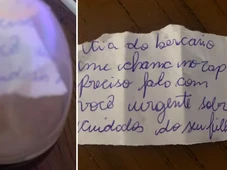 Tia do berçario
me chama no zap
preciso falo com
você urgente sobre
cuidados do seu filho